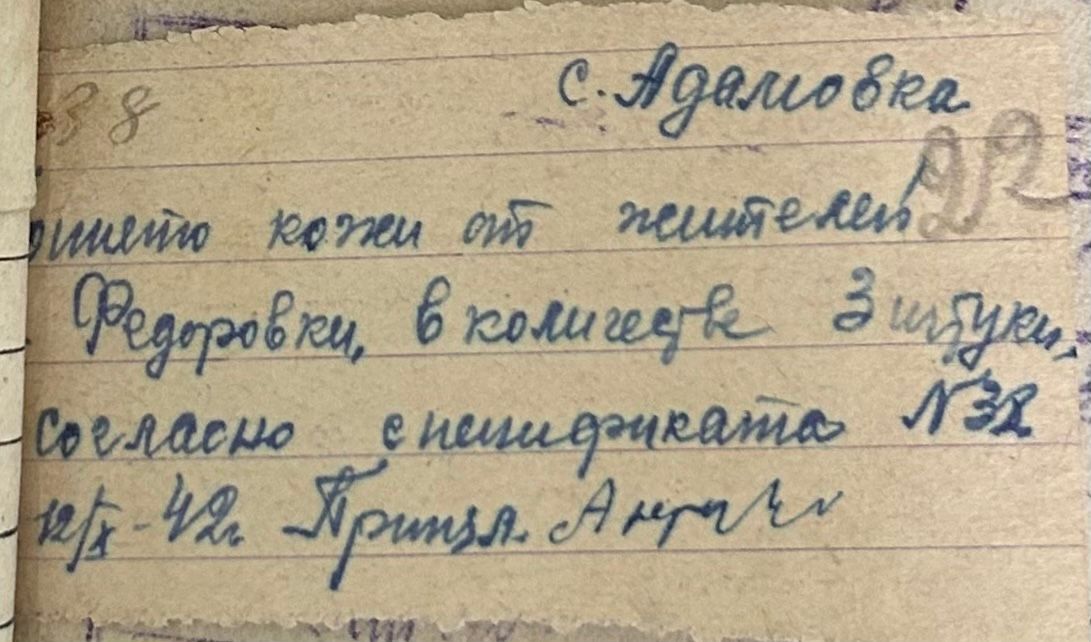 с. Адамовка
38
212
принято кожи от жителей
Федоровки, в количестве 3 штуки,
согласно спецификата N 32
12/IX-42г. Принял